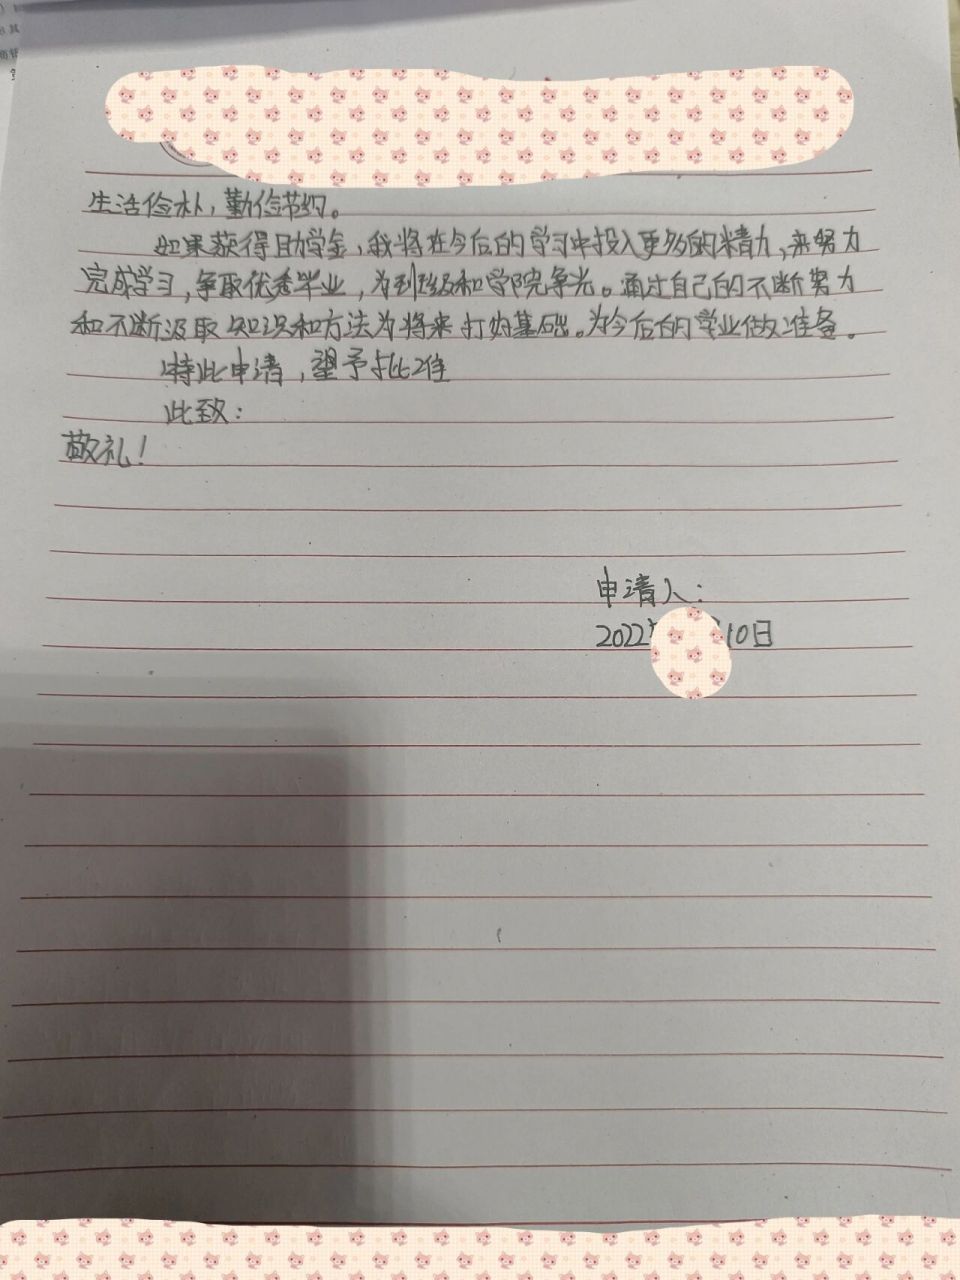 生活俭朴，勤俭节约。
如果获得助学金，我将在今后的学习中投入更多的精力，来努力
完成学习，争取优秀毕业，为到班级和学院争光。通过自己的不断努力
和不断汲取知识和方法为将来打好基础。为今后的学业做准备。
特此申请，望予批准
此致：
敬礼！
申请人：
2022年 10日